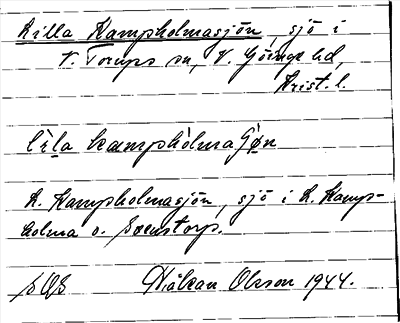 Lilla Kampholmasjön, sjö i
V. Torups sn, V. Göinge hd,
Krist. l.
lìla kamphòlmaʃøn
L. Kampholmasjön, sjö i L. Kamp-
holma o. Svenstorp.
Håkan Olsson 1944.